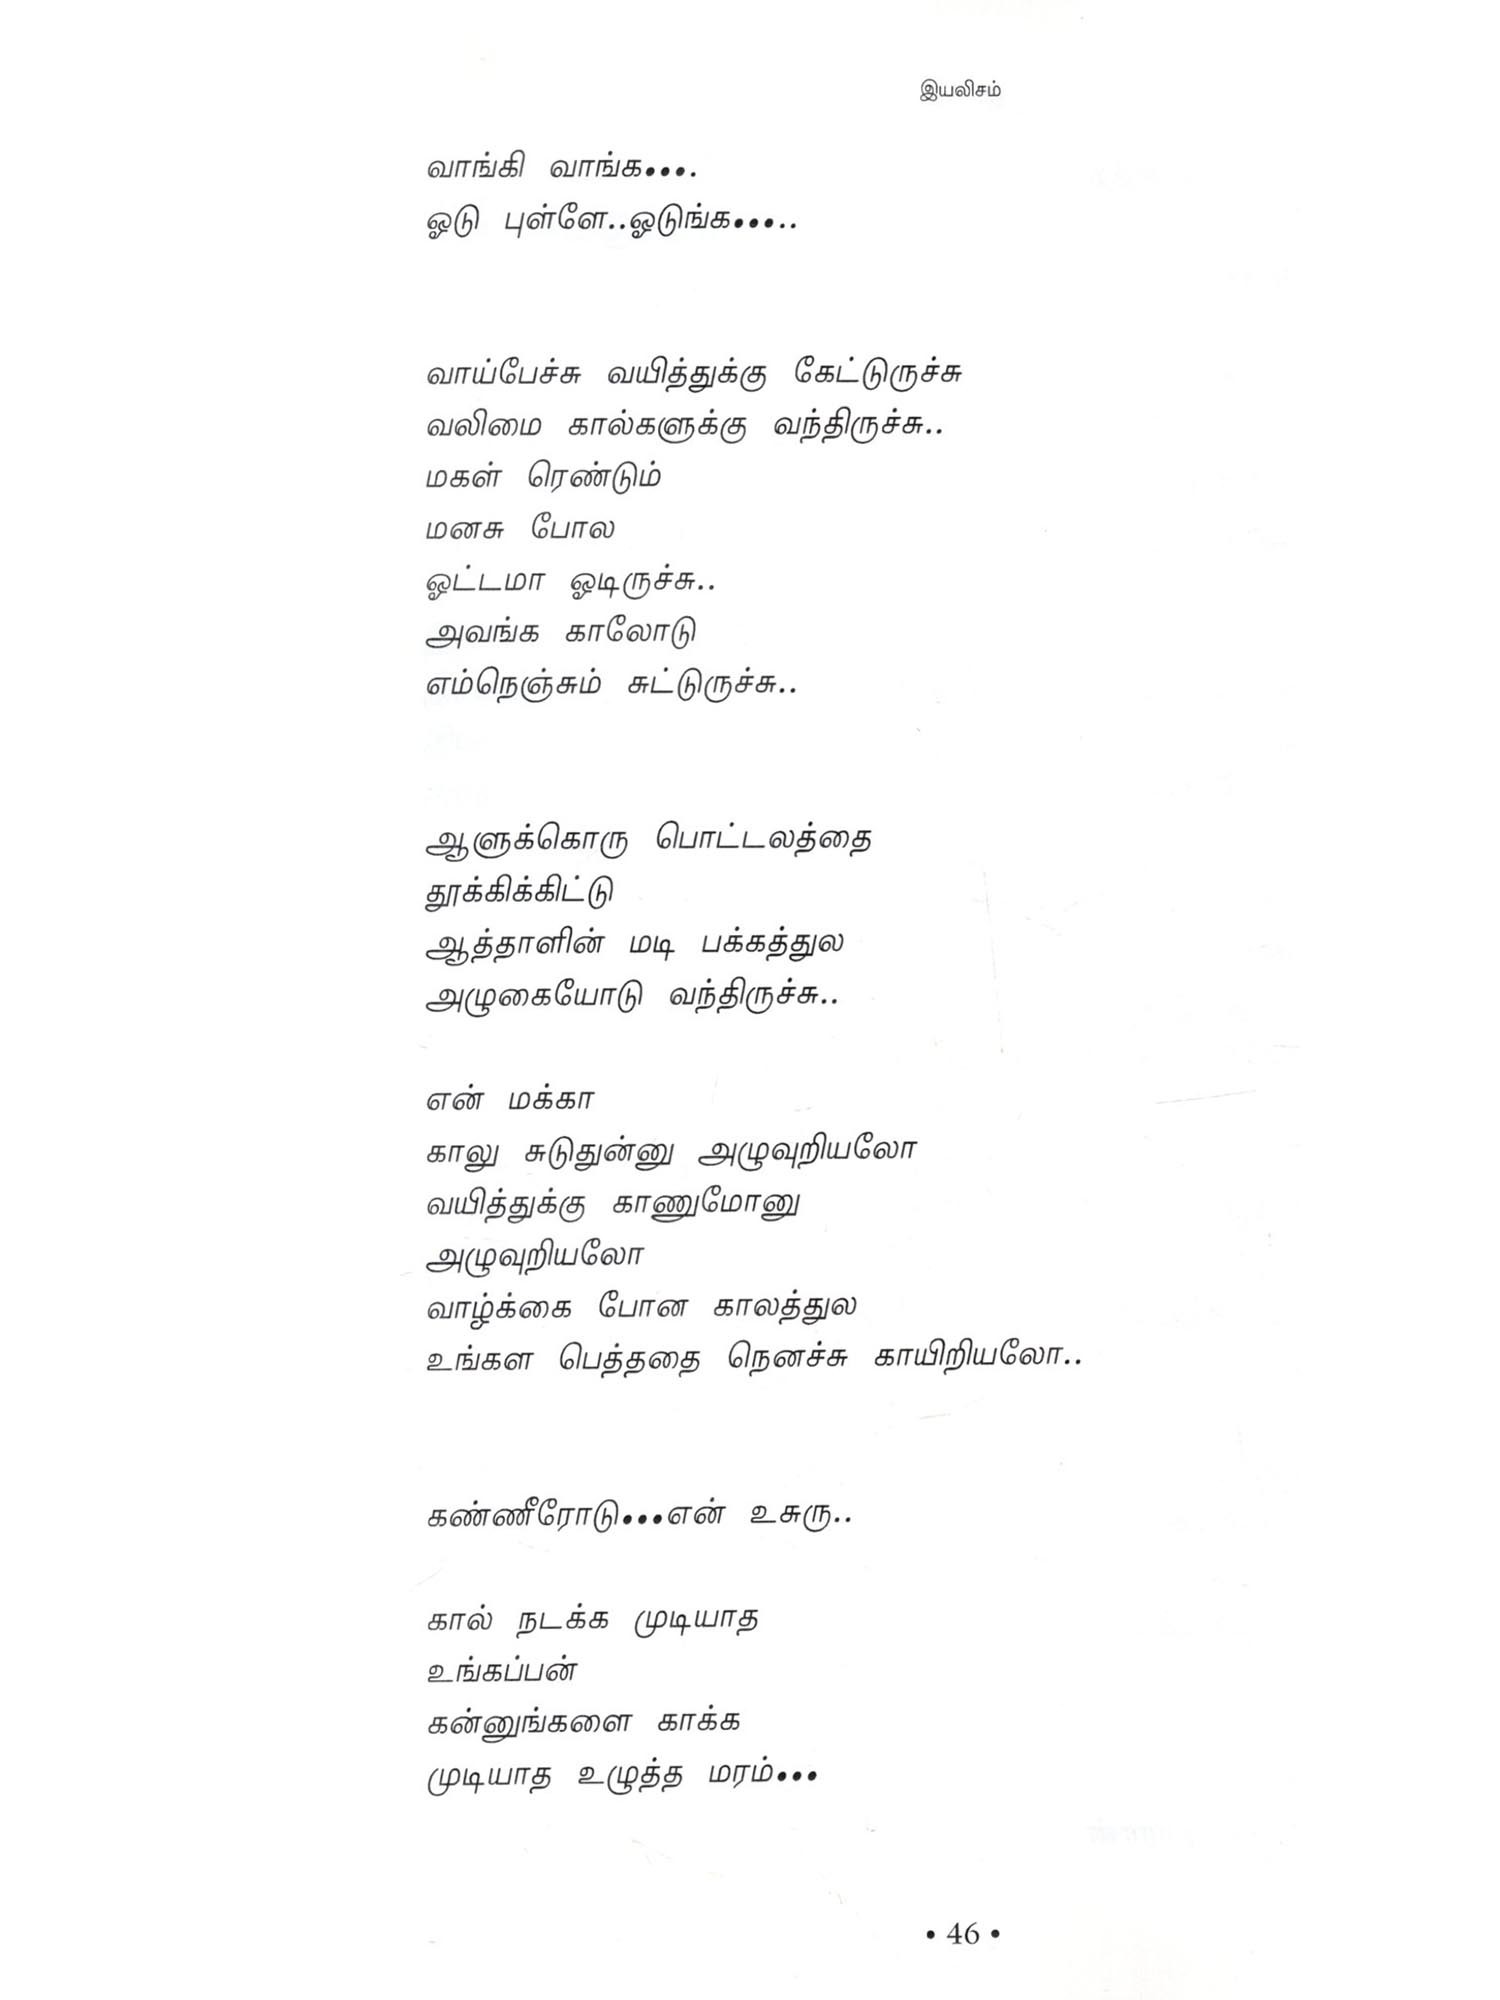 இயலிசம்
வாங்கி வாங்க•••.
ஓடு புள்ளே..ஓடுங்க•••..
வாய்பேச்சு வயித்துக்கு கேட்டுருச்சு
வலிமை கால்களுக்கு வந்திருச்சு..
மகள் ரெண்டும்
மனசு போல
ஓட்டமா ஓடிருச்சு..
அவங்க காலோடு
எம்நெஞ்சும் சுட்டுருச்சு..
ஆளுக்கொரு பொட்டலத்தை
தூக்கிக்கிட்டு
ஆத்தாளின் மடி பக்கத்துல
அழுகையோடு வந்திருச்சு..
என் மக்கா
காலு சுடுதுன்னு அழுவுறியலோ
வயித்துக்கு காணுமோனு
அழுவுறியலோ
வாழ்க்கை போன காலத்துல
உங்கள பெத்ததை நெனச்சு காயிறியலோ..
கண்ணீரோடு•••என் உசுரு..
கால் நடக்க முடியாத
உங்கப்பன்
கன்னுங்களை காக்க
முடியாத உழுத்த மரம்•••
• 46 •